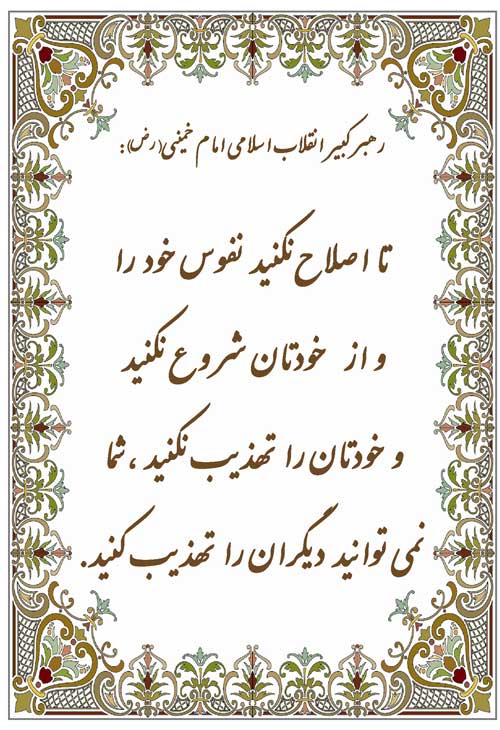 رهبر کبیر انقلاب اسلامی امام خمینی (رض):
تا اصلاح نکنید نفوس خود را
و از خودتان شروع نکنید
و خودتان را تهذیب نکنید ، شما
نمی توانید دیگران را تهذیب کنید.